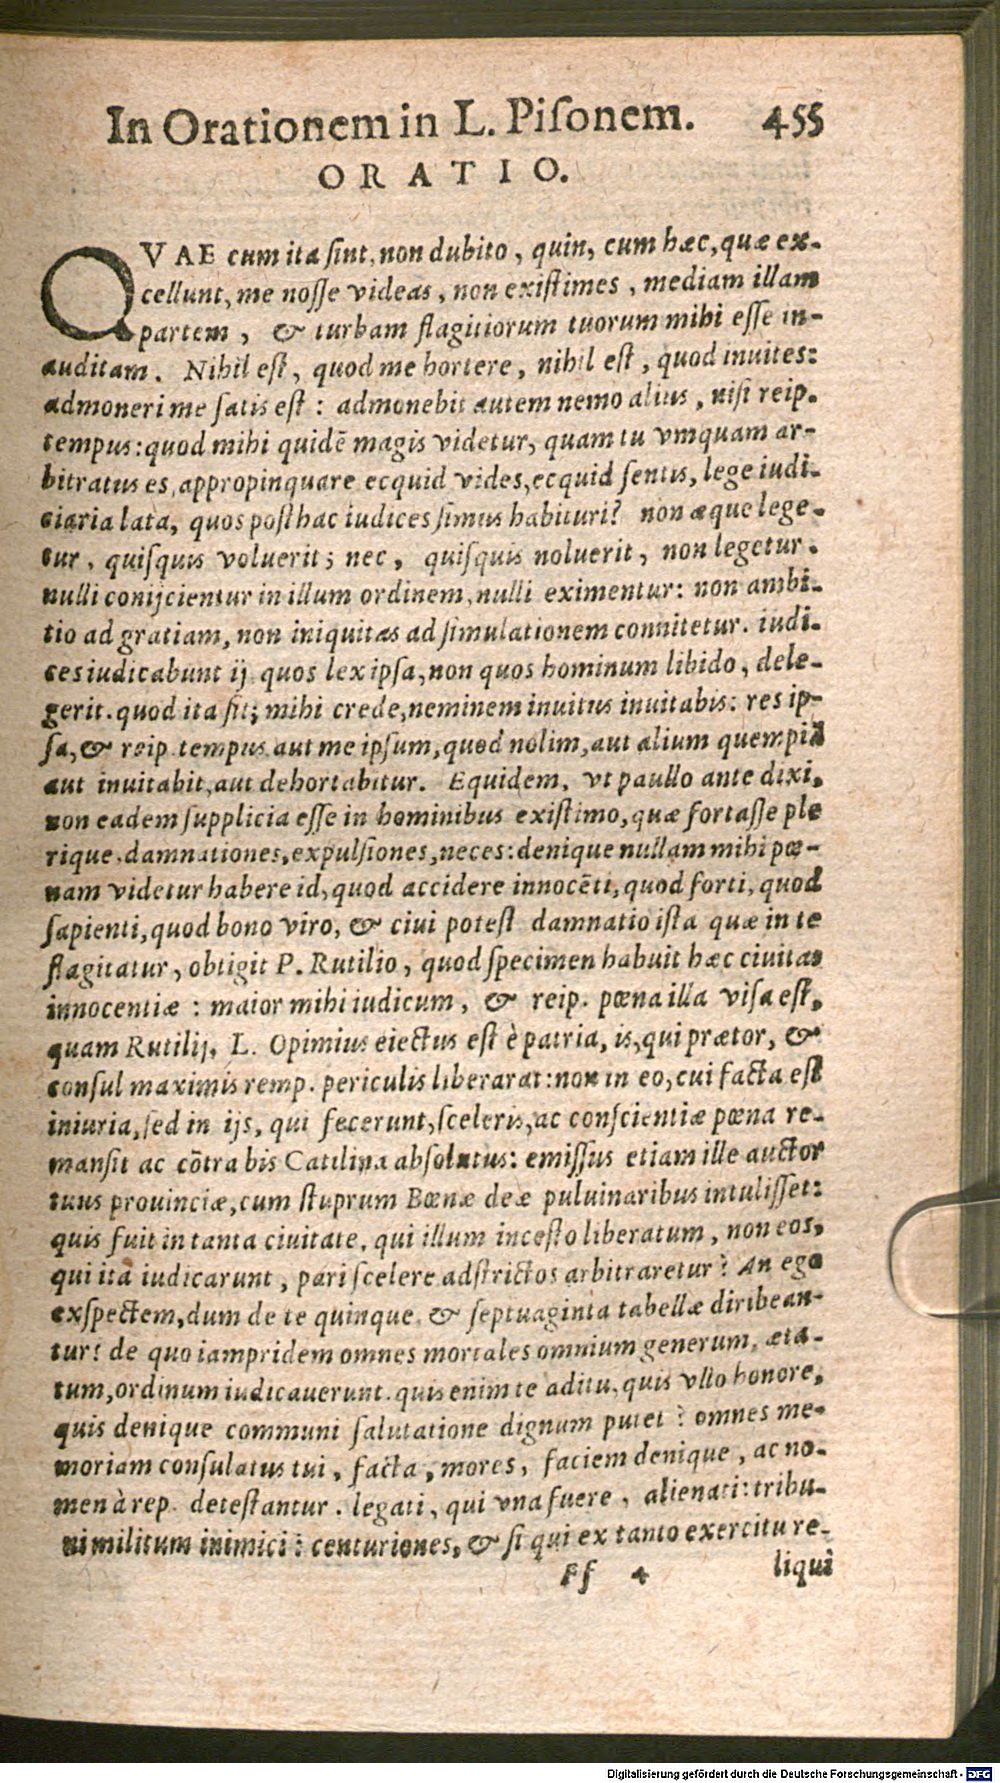 In Orationem in L. Piſonem. 455
ORATIO.
QVAE cum ita ſint, non dubito, quin, cum hæc, quæ ex-
cellunt, me noſſe videas, non exiſtimes, mediam illam
partem, & turbam flagitiorum tuorum mihi eſſe in-
auditam. Nihil eſt, quod me hortere, nihil eſt, quod inuites:
admoneri me ſatis eſt: admonebit autem nemo alius, niſi reip.
tempus: quod mihi quidē magis videtur, quam tu vmquam ar-
bitratus es, appropinquare ecquid vides, ecquid ſentis, lege iudi-
ciaria lata, quos poſthac iudices ſimus habituri? non æque lege-
tur, quiſquis voluerit; nec, quiſquis noluerit, non legetur.
nulli conijcientur in illum ordinem, nulli eximentur: non ambi-
tio ad gratiam, non iniquitas ad ſimulationem connitetur. iudi-
ces iudicabunt ij quos lex ipſa, non quos hominum libido, dele-
gerit. quod ita ſit; mihi crede, neminem inuitus inuitabis: res ip-
ſa, & reip. tempus aut me ipſum, quod nolim, aut alium quempiā
aut inuitabit, aut dehortabitur. Equidem, vt paullo ante dixi,
non eadem ſupplicia eſſe in hominibus exiſtimo, quæ fortaſſe ple
rique. damnationes, expulſiones, neces: denique nullam mihi pœ-
nam videtur habere id, quod accidere innocēti, quod forti, quod
ſapienti, quod bono viro, & ciui poteſt damnatio iſta quæ in te
flagitatur, obtigit P. Rutilio, quod ſpecimen habuit hæc ciuitas
innocentiæ: maior mihi iudicum, & reip. pœna illa viſa eſt,
quam Rutilij. L. Opimius eiectus eſt è patria, is, qui prætor, &
conſul maximis remp. periculis liberarat: non in eo, cui facta eſt
iniuria, ſed in ijs, qui fecerunt, ſceleris, ac conſcientiæ pœna re-
manſit ac cōtra bis Catilina abſolutus: emiſſus etiam ille auctor
tuus prouinciæ, cum ſtuprum Bœnæ deæ puluinaribus intuliſſet:
quis fuit in tanta ciuitate, qui illum inceſto liberatum, non eos,
qui ita iudicarunt, pari ſcelere adſtrictos arbitraretur? An ego
exſpectem, dum de te quinque & ſeptuaginta tabellæ diribean-
tur? de quo iampridem omnes mortales omnium generum, æta-
tum, ordinum iudicauerunt. quis enim te aditu, quis vllo honore,
quis denique communi ſalutatione dignum putet? omnes me-
moriam conſulatus tui, facta, mores, faciem denique, ac no-
men à rep. deteſtantur. legati, qui vna fuere, alienati: tribu-
ni militum inimici: centuriones, & ſi qui ex tanto exercitu re-
Ff 4 liqui
Digitalisierung gefördert durch die Deutsche Forschungsgemeinschaft - DFG